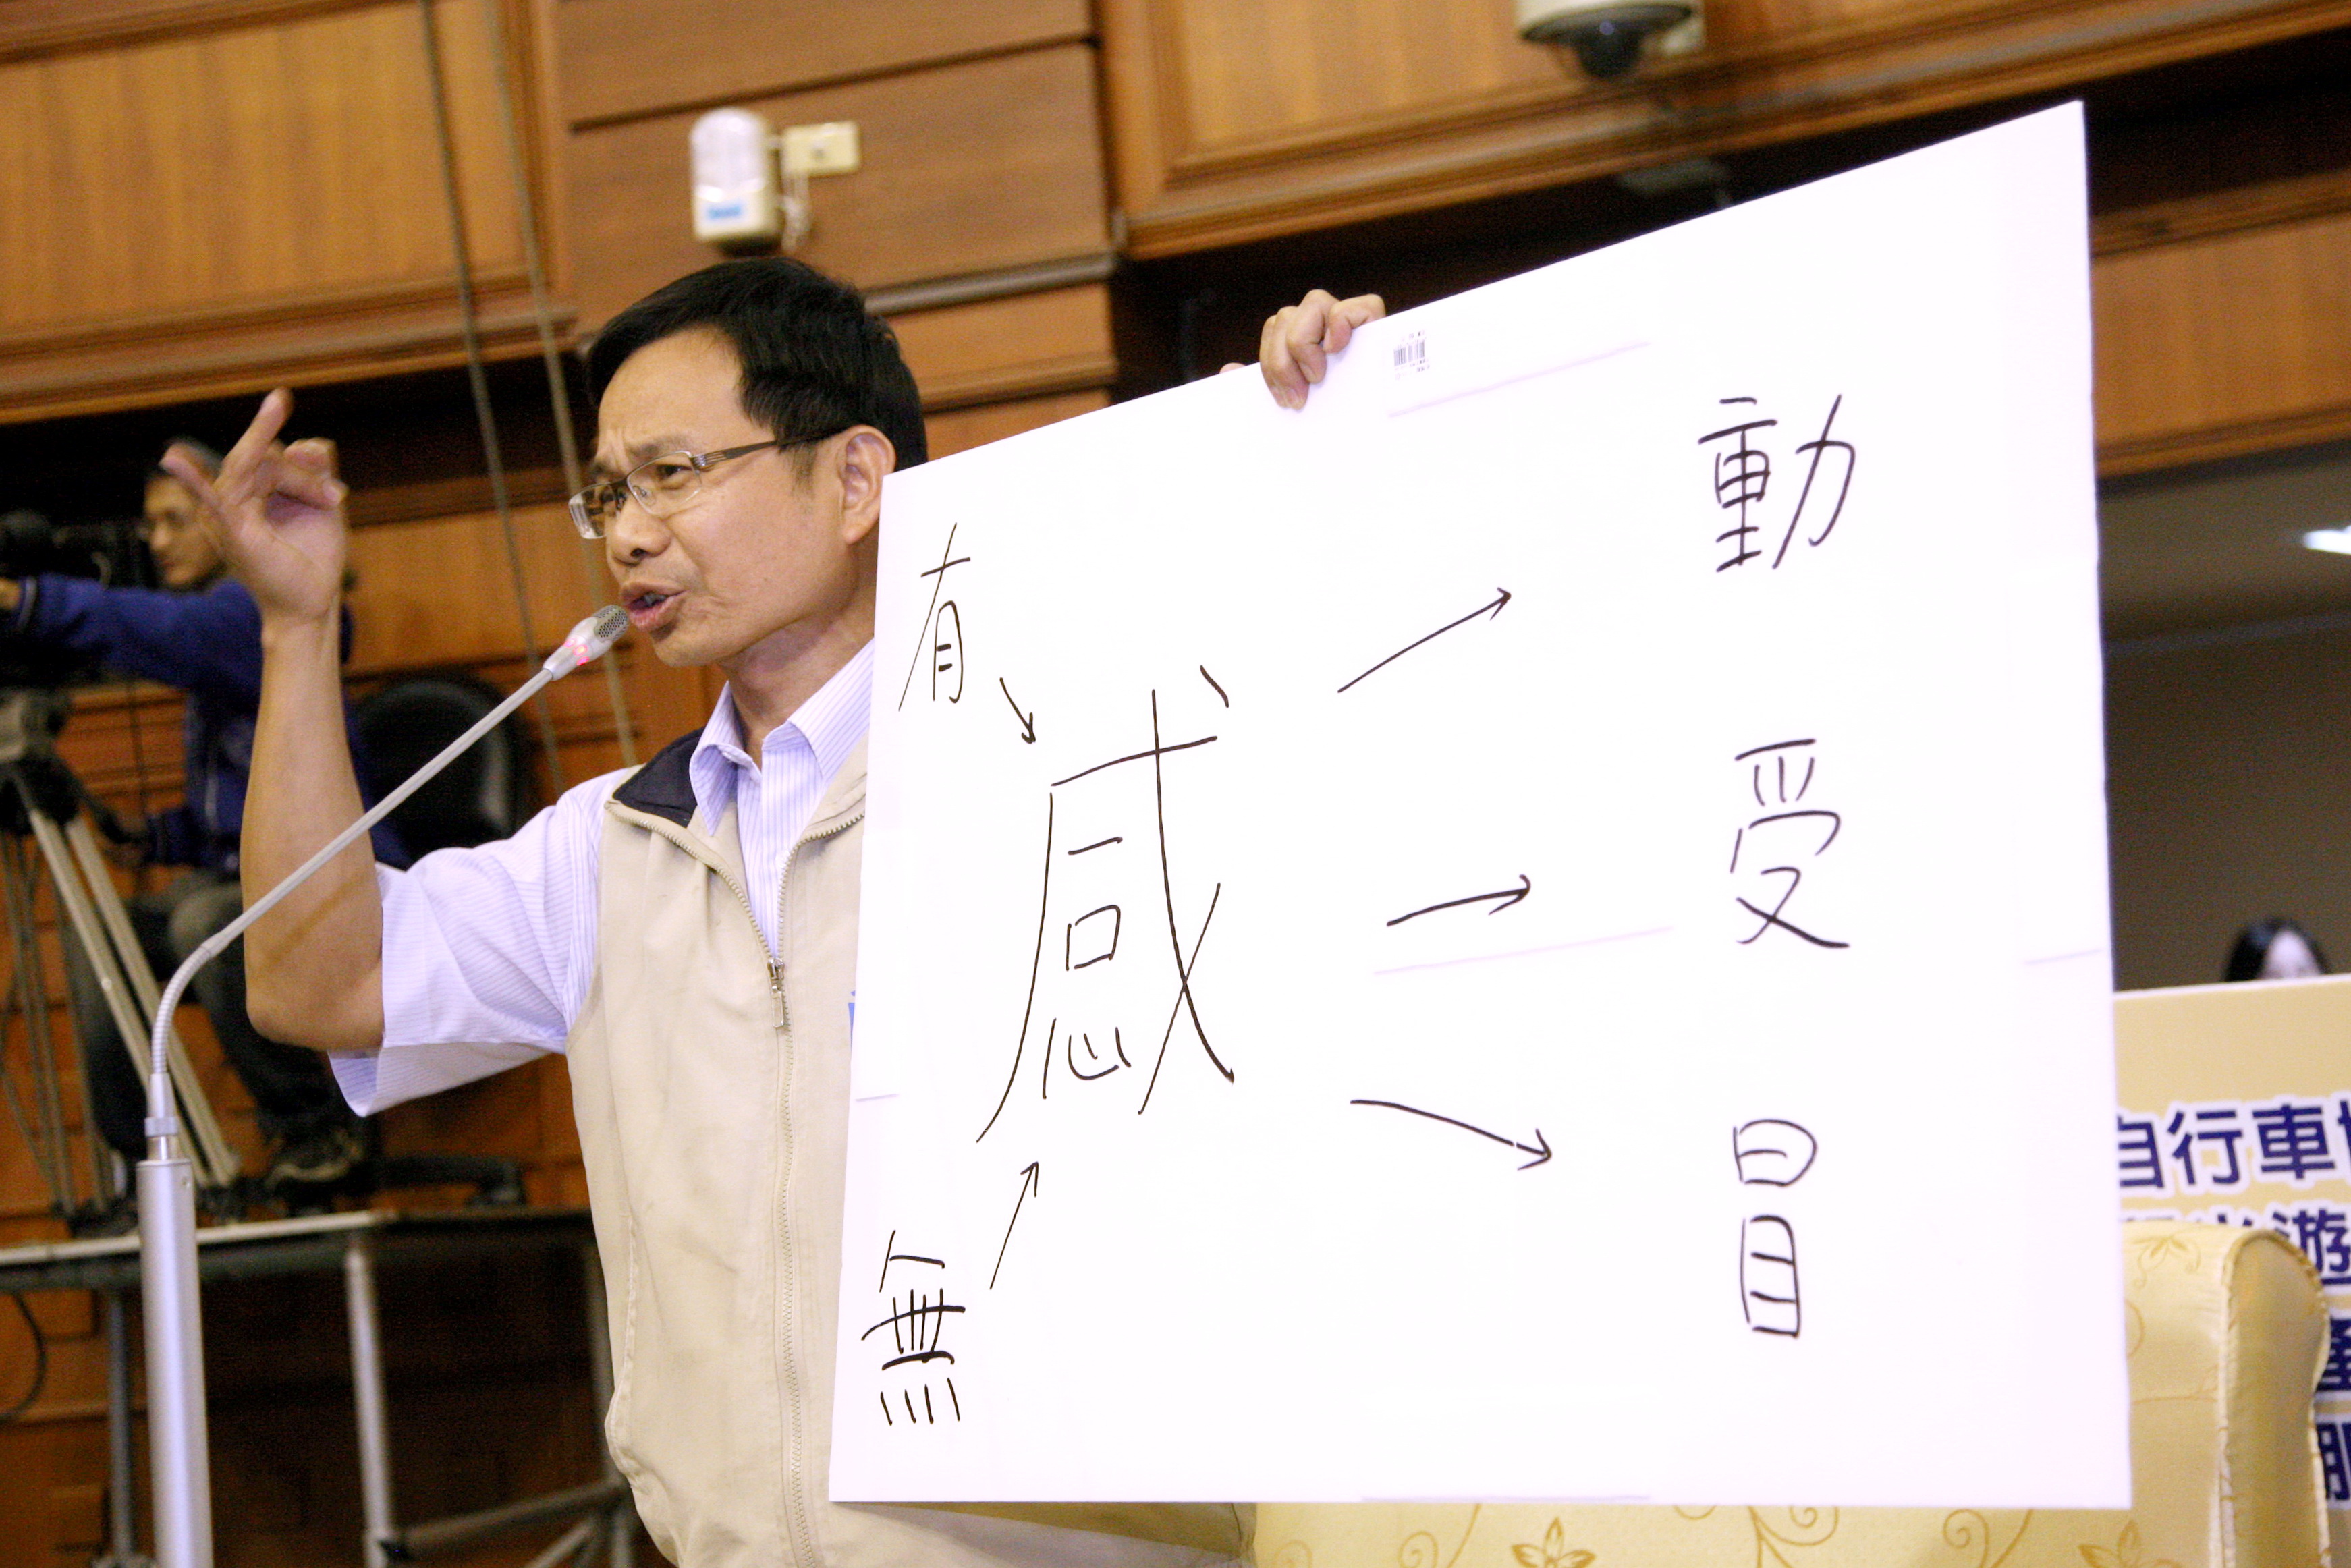 有
無
感
動
受
冒
自行車
遊